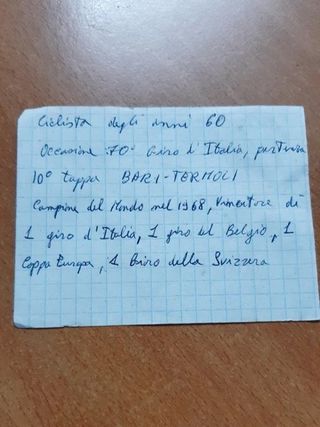 Ciclista degli anni 60
Occasione 70° Giro d'Italia, partenza
10° tappa BARI-TERMOLI
Campione del Mondo nel 1968, Vincitore di
1 giro d'Italia, 1 giro del Belgio, 1
Coppa Europa, 1 Giro della Svizzera